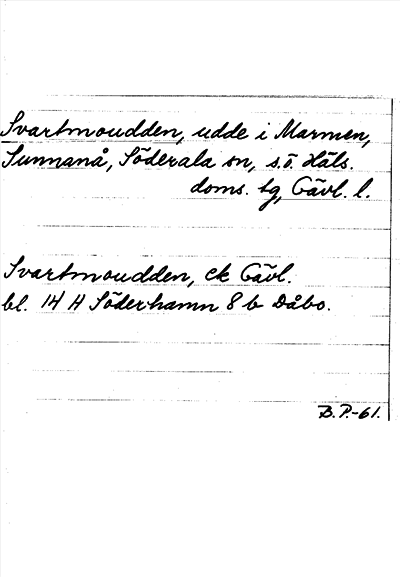 Svartmoudden, udde i Marmen,
Sunnanå, Söderala sn, s.ö. Häls.
doms. tg, Gävl. l.
Svartmoudden, ek Gävl.
bl. 14 H Söderhamn 8 b Dåbo.
B.P.-61.